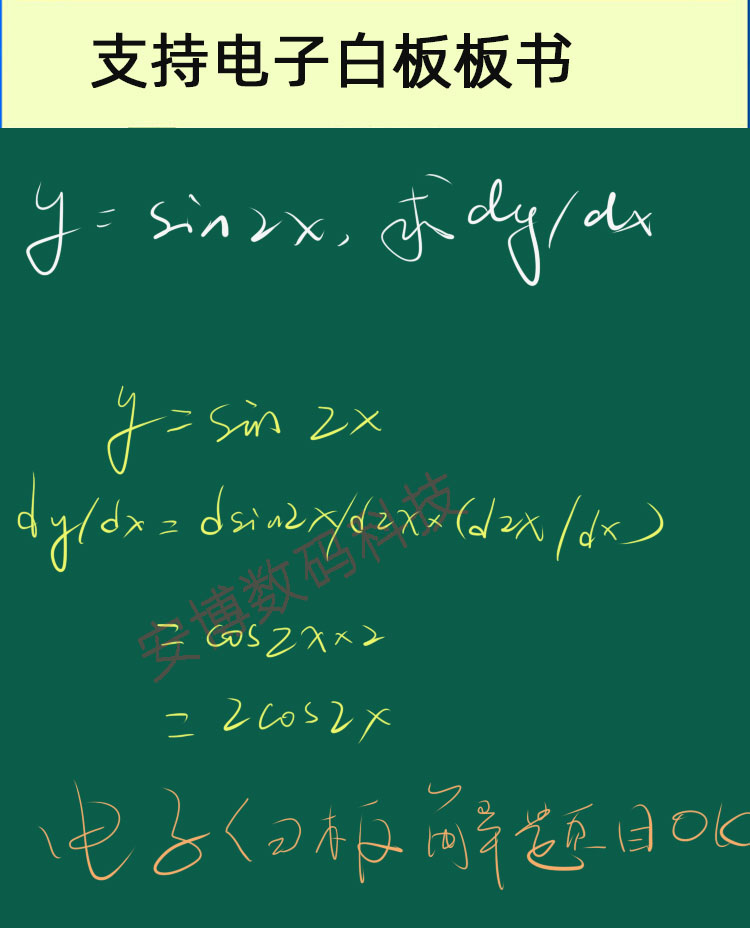 支持电子白板板书
y = sin2x, 求dy/dx
y = sin 2x
dy/dx = dsin2x/d2x×(d2x/dx)
安博数码科技
= cos2x×2
= 2cos2x
电子白板解题目OK